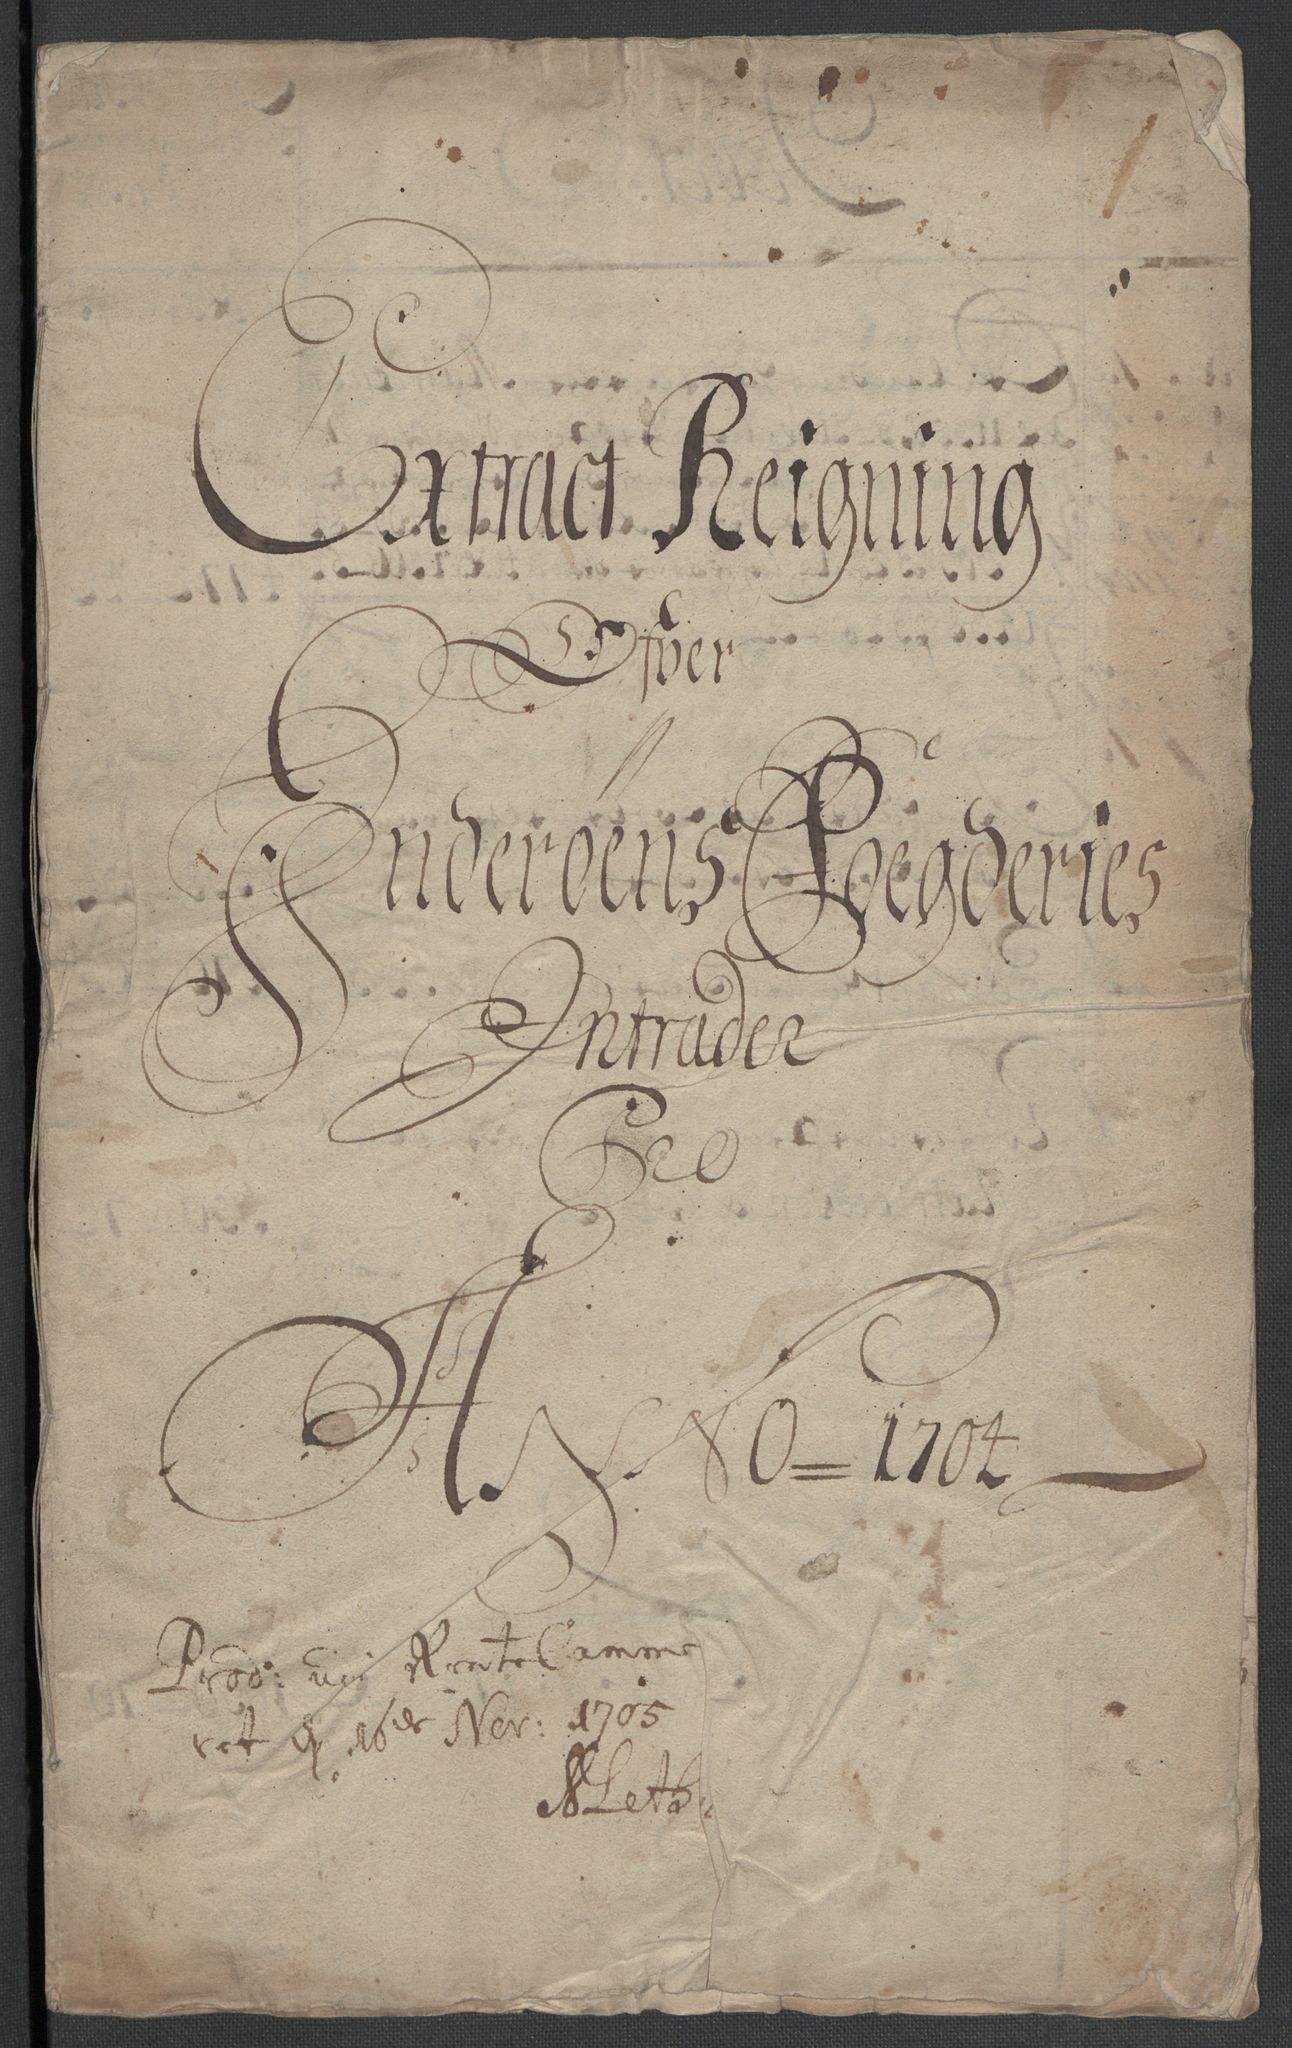 Extract Reigning
Ofver
Inderøens Foegderies
Intrader
Pro
ANNO = 1704
Prod: udj Rente Camme
ret d 16de Nov: 1705